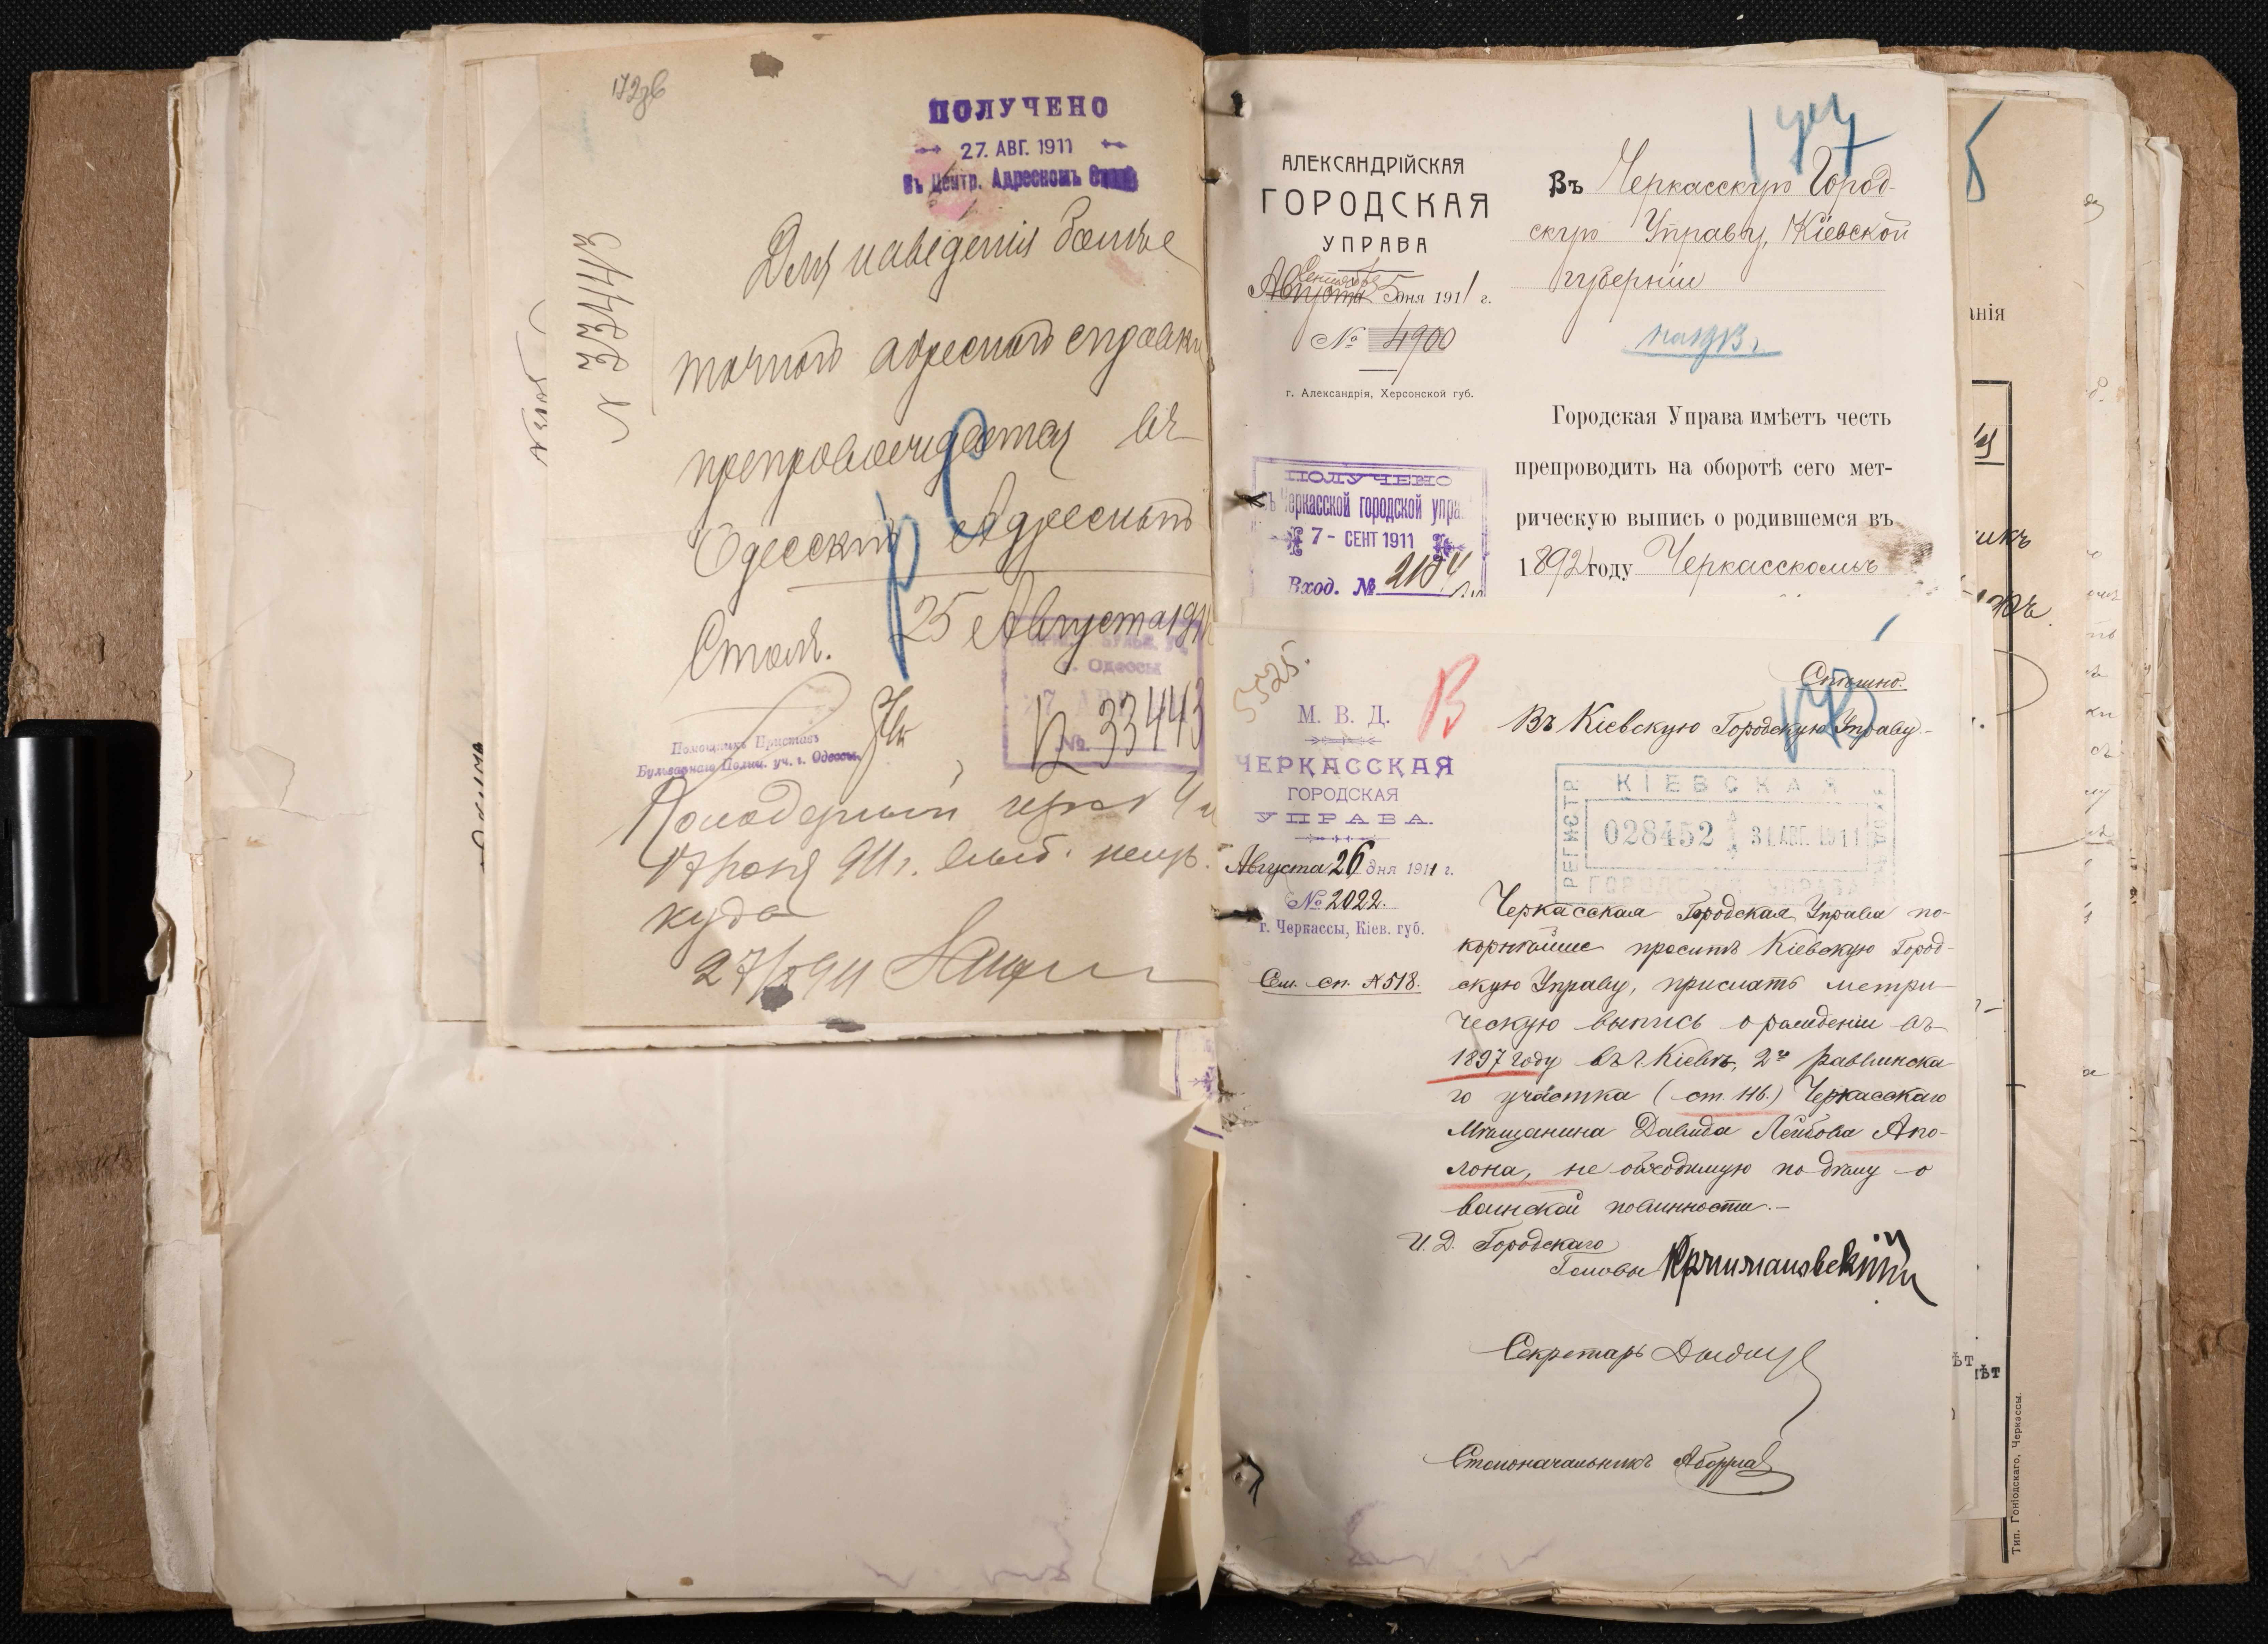 172зв
ПОЛУЧЕНО
27. АВГ. 1911
Въ Центр. Адресномъ
№ 33443
Для наведенія болѣе
точной адресной справки
препровождается въ
Одесскій Адресный
Столъ. 25 Августа 1911
г. Одессы
№ 33443
Помощникъ Пристава
Бульварнаго Полиц. уч. г. Одессы
17 Іюня 911 г. выб. неизв.
куда
27/8 911
АЛЕКСАНДРІЙСКАЯ
ГОРОДСКАЯ
УПРАВА
Сентября
Августа 5 дня 1911 г.
№ 4900
г. Александрія, Херсонской губ.
Въ Черкасскую Город-
скую Управу, Кіевской
губерніи
Городская Управа имѣетъ честь
препроводить на оборотѣ сего мет-
рическую выпись о родившемся въ
1892 году Черкасскомъ
ПОЛУЧЕНО
въ Черкасской городской упра
7 - СЕНТ 1911
Вход. №
5525.
В
М. В. Д.
ЧЕРКАССКАЯ
ГОРОДСКАЯ
УПРАВА.
Августа 26 дня 1911 г.
№ 2022.
г. Черкассы, Кіев. губ.
См. сп. № 518.
Спѣшно.
Въ Кіевскую Городскую Управу.-
КІЕВСКАЯ
РЕГИСТР
028452 31 АВГ. 1911
ГОРОДСКАЯ УПРАВА
Черкасская Городская Управа по-
корнѣйше проситъ Кіевскую Город-
скую Управу, прислать метри-
ческую выпись о рожденіи въ
1897 году въ г. Кіевѣ, 2го раввинска
го участка (ст. 116.) Черкасскаго
Мѣщанина Давида Лейбова Апо-
лона, не обходимую по дѣлу о
воинской повинности.-
И. Д. Городского
Головы
Секретарь
Столоначальникъ
анія
Тип. Гоніодскаго, Черкассы.